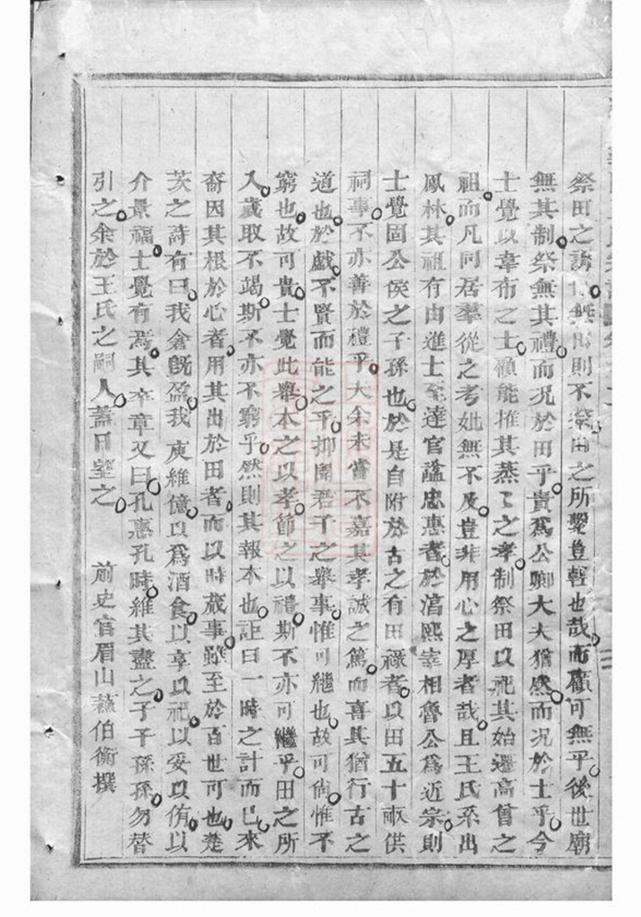 祭田之謂　無田則不祭田之所繫豈輕也哉而顧可無乎後世廟
無其制祭無其禮而況於田乎貴為公卿大夫猶然而況於士乎今
士覺以韋布之士顧能推其蒸之孝制祭田以祀其始遷高曾之
祖而凡同居羣從之考妣無不及豈非用心之厚者哉且王氏系出
鳳林其祖有由進士至達官諡忠惠者於淳熙宰相魯公為近宗則
士覺固公侯之子孫也於是自附於古之有田祿者以田五十畝供
祠事不亦善於禮乎大余未嘗不嘉其孝誠之篤而喜其猶行古之
道也於戲不賢而能之乎抑聞君子之舉事惟可繼也故可尚惟不
窮也故可貴士覺此舉本之以孝節之以禮斯不亦可繼乎田之所
入歲取不竭斯不亦不窮乎然則其報本也詎曰一時之計而已來
裔因其根於心者用其出於田者而以時蕆事雖至於百世可也楚
茨之詩有曰我倉既盈我庾維億以為酒食以享以祀以妥以侑以
介景福士覺有焉其卒章又曰孔惠孔時維其盡之子子孫孫勿替
引之余於王氏之嗣人蓋日望之　前史官眉山蘇伯衡撰